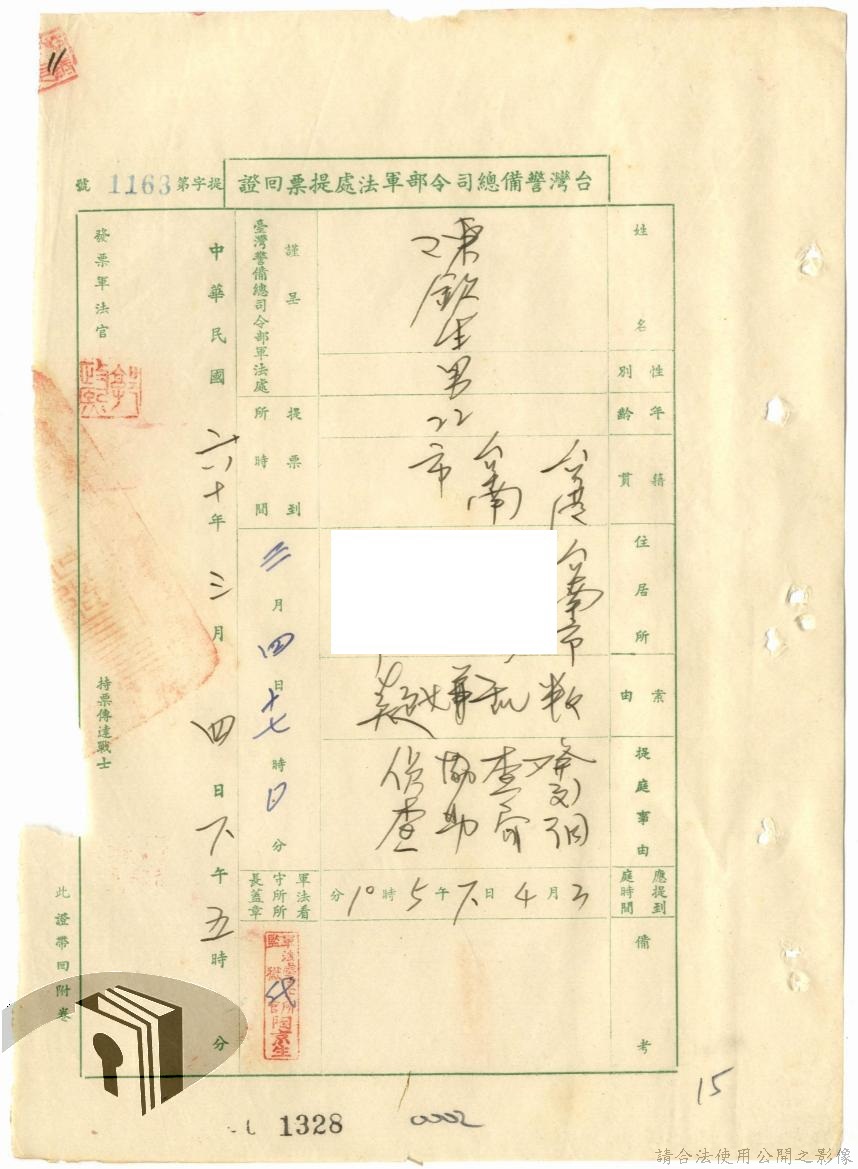 11
台灣警備總司令部軍法處提票回證
提字第1163號
姓名
陳欽生
性別
男
年齡
22
籍貫
台灣
台南
市
住居所
台南市
案由
叛亂
嫌疑
提庭事由
發交調
查局
協助
偵查
應提到庭時間
3月4日下午5時10分
備考
謹呈
臺灣警備總司令部軍法處
提票到所時間
三月四日十七時 分
軍法看守所所長蓋章
代
中華民國六十年三月四日下午五時 分
發票軍法官
持票傳達戰士
此證帶回附卷
1328
0002
15
請合法使用公開之影像